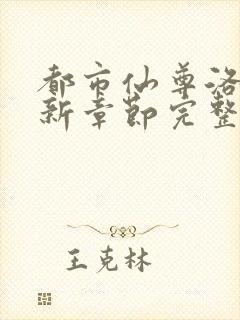 都市仙尊洛
新章节完整
王克林